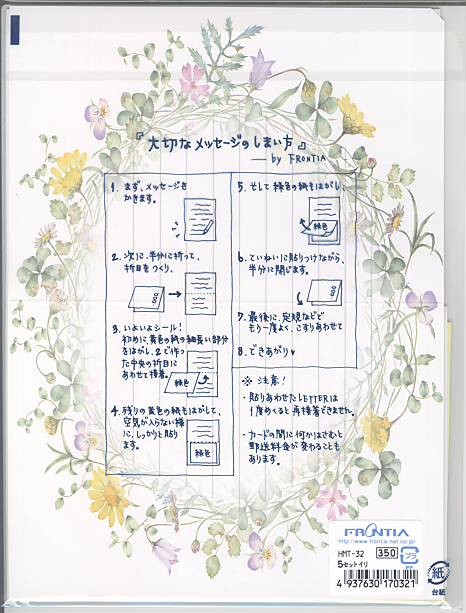 『大切なメッセージのしまい方』
— by FRONTIA
1. まず、メッセージを
かきます。
2. 次に、半分に折って、
折目をつくり、
3. いよいよシール！
初めに黄色の紙の細長い部分
をはがし、2で作っ
た中央の折目に
あわせて接着。
緑色
4. 残りの黄色の紙もはがして、
空気が入らない様
に、しっかりと貼り
ます。
緑色
5. そして緑色の紙もはがし、
緑色
6. ていねいに貼りつけながら、
半分に閉じます。
7. 最後に、定規などで
もう一度よく、こすりあわせて
8. できあがり♥
※ 注意！
・貼りあわせたLETTERは
1度めくると再接着できません。
・カードの間に何かはさむと
郵送料金が変わることも
あります。
FRONTIA
http://www.frontia-net.co.jp/
HMT-32 350 プラ
PP
5セットイリ
4 937630 170321
紙
台紙